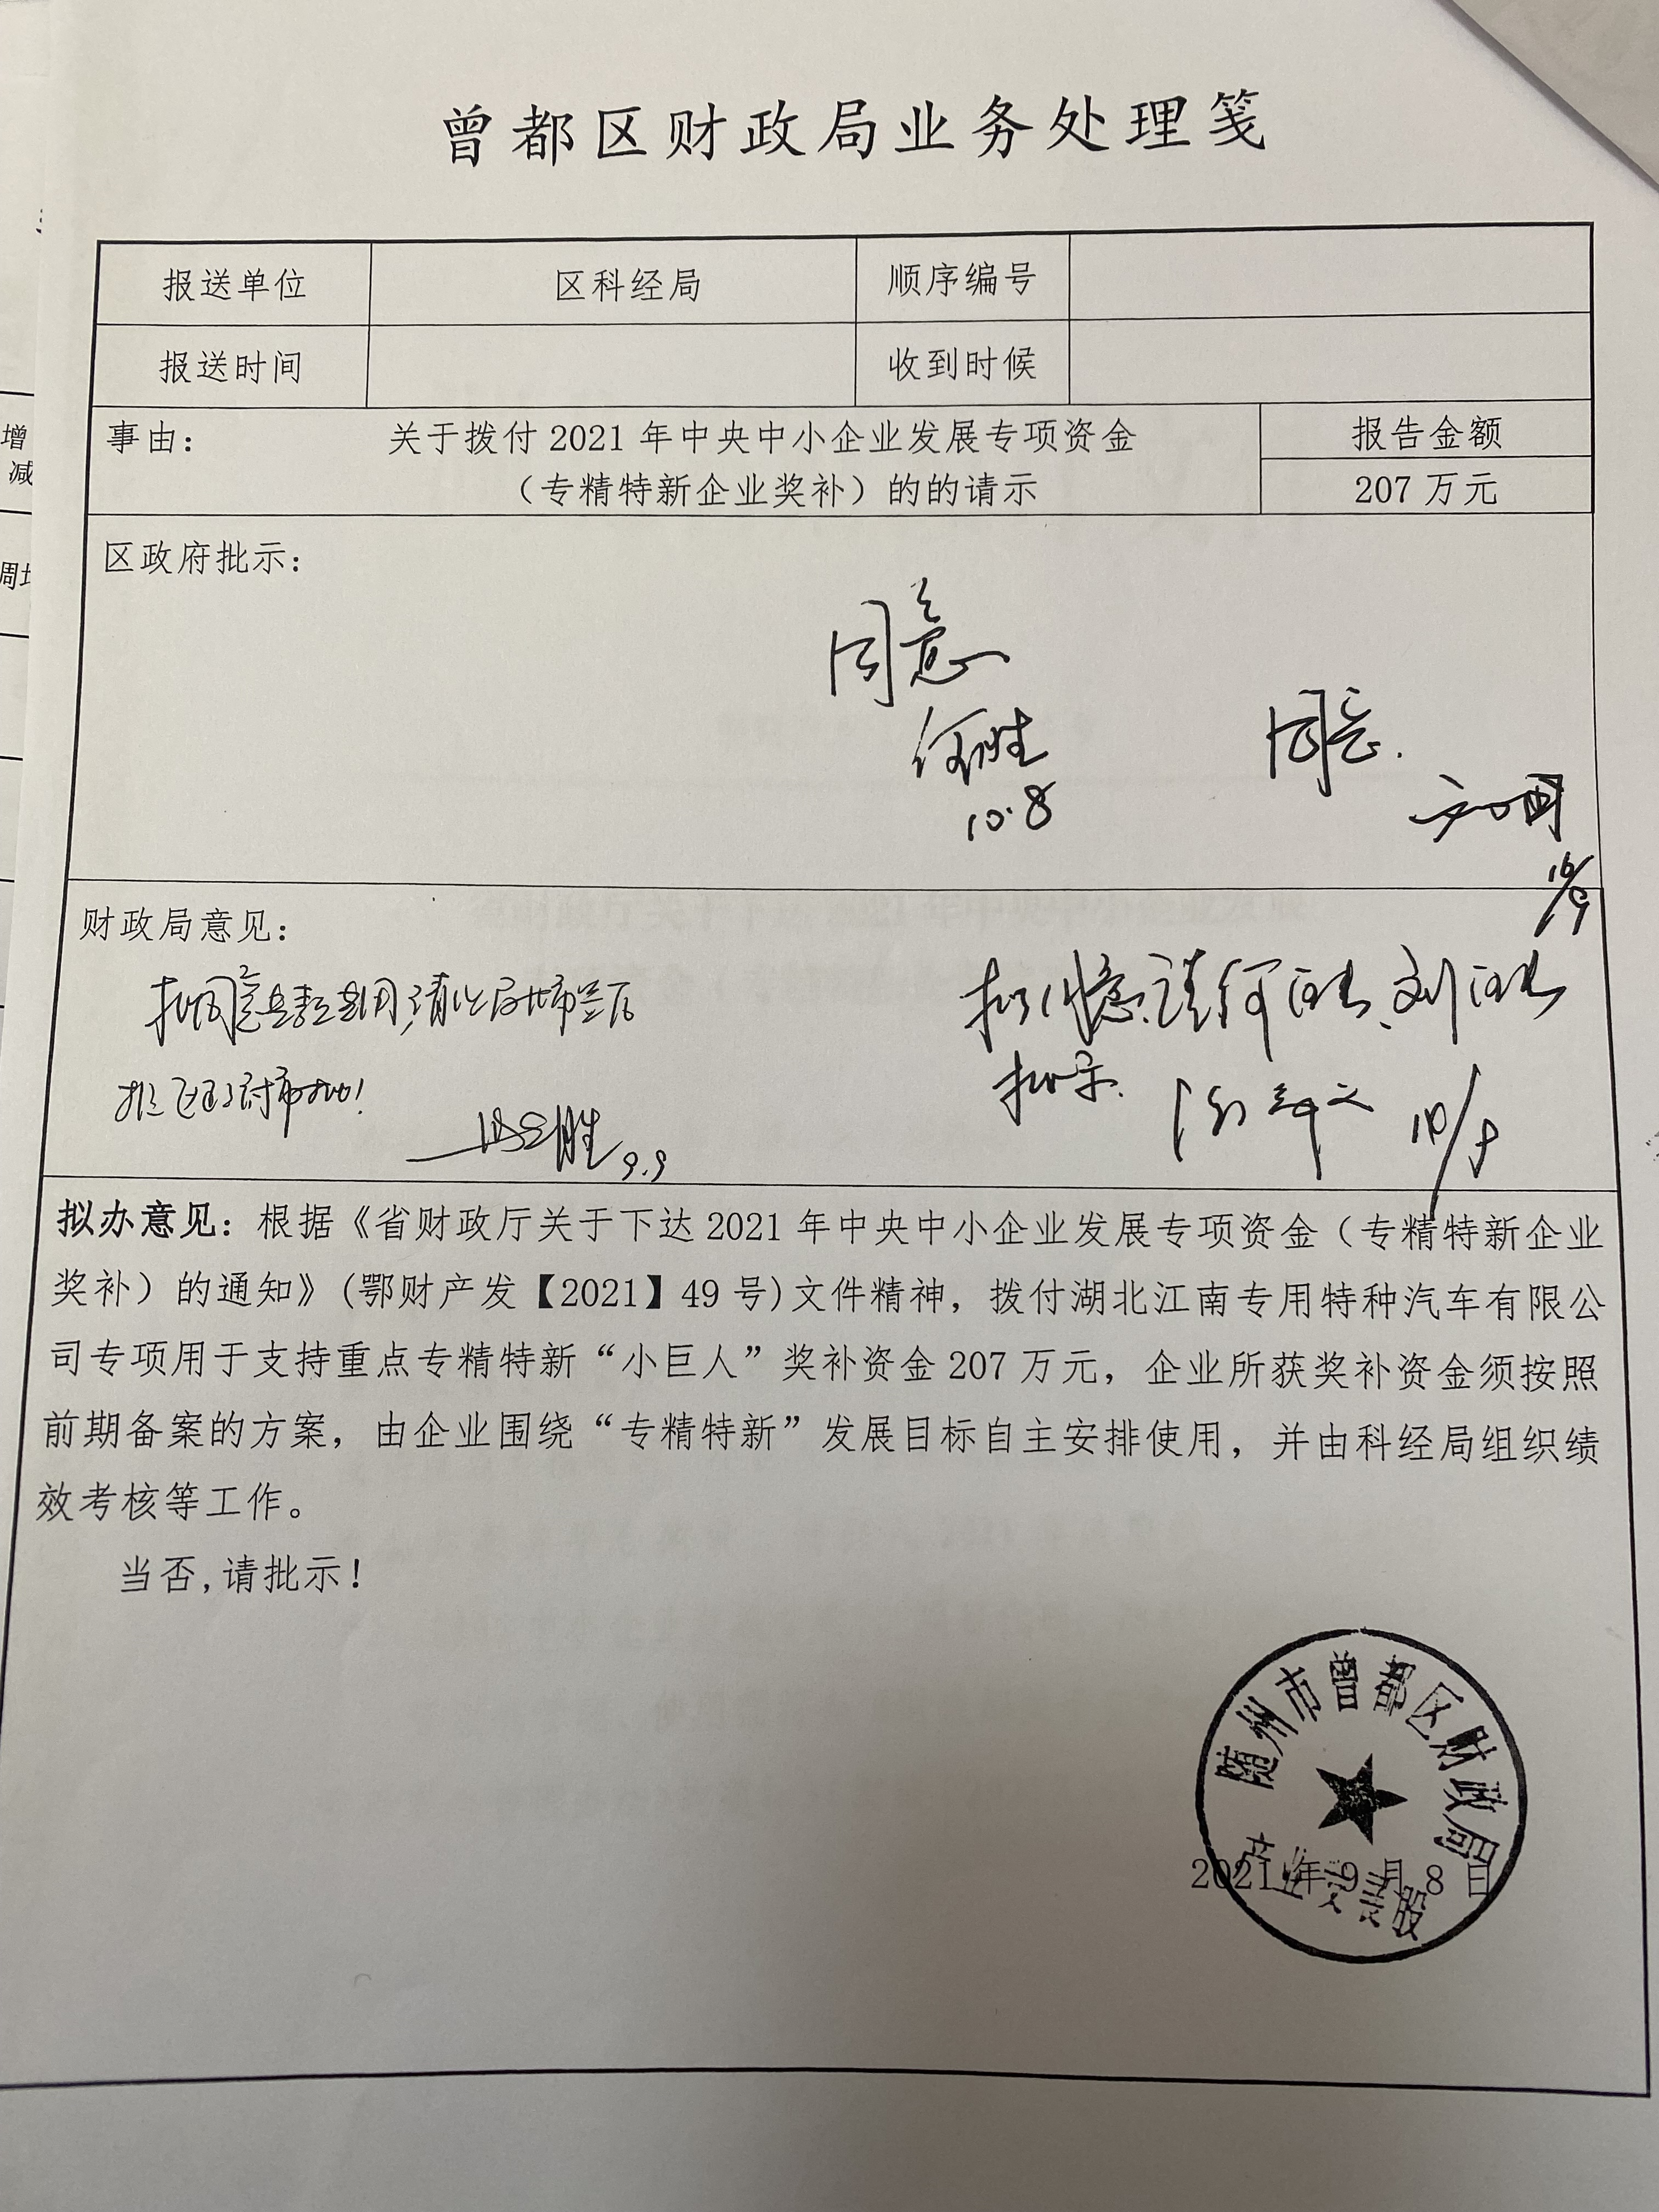 曾都区财政局业务处理笺
报送单位 区科经局 顺序编号
报送时间 收到时候
事由： 关于拨付 2021 年中央中小企业发展专项资金 报告金额
（专精特新企业奖补）的的请示 207 万元
区政府批示：
同意
同意.
何胜
10.8
财政局意见：
拟同意
拟同意,请何区长、刘区长
批示.
9.9
拟办意见：根据《省财政厅关于下达 2021 年中央中小企业发展专项资金（专精特新企业
奖补）的通知》(鄂财产发【2021】49 号)文件精神，拨付湖北江南专用特种汽车有限公
司专项用于支持重点专精特新“小巨人”奖补资金 207 万元，企业所获奖补资金须按照
前期备案的方案，由企业围绕“专精特新”发展目标自主安排使用，并由科经局组织绩
效考核等工作。
当否,请批示！
随州市曾都区财政局
产业发展股
2021 年 9 月 8 日
增
减
调增